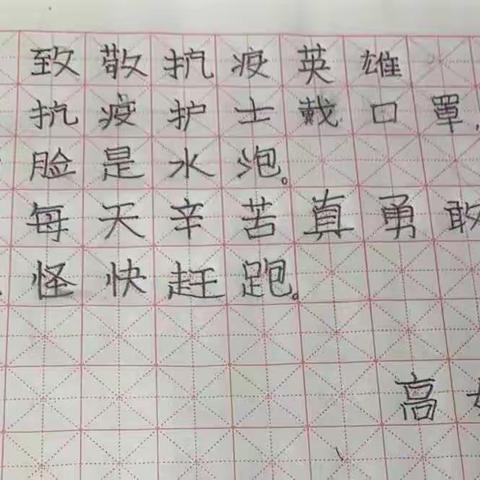 致敬抗疫英雄
抗疫护士戴口罩,
脸是水泡。
每天辛苦真勇敢
怪快赶跑。
高